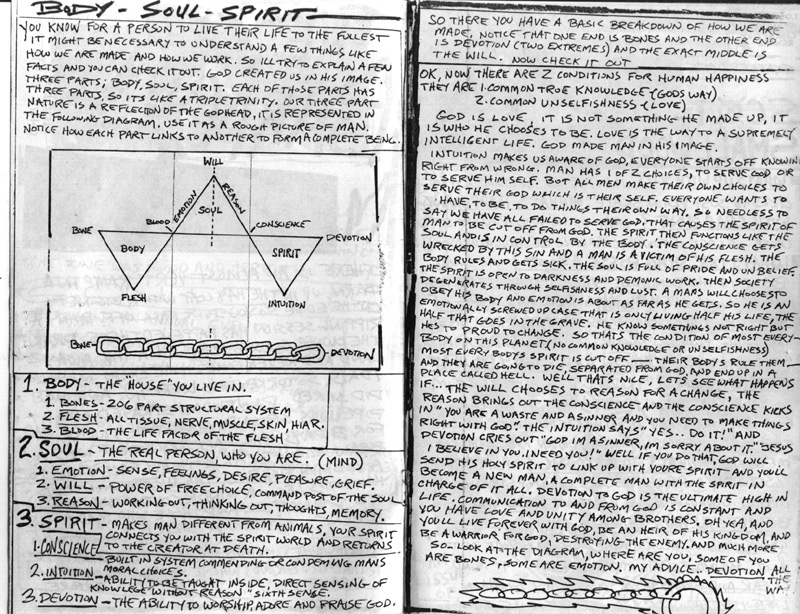 BODY - SOUL - SPIRIT
YOU KNOW FOR A PERSON TO LIVE THEIR LIFE TO THE FULLEST
IT MIGHT BE NECESSARY TO UNDERSTAND A FEW THINGS LIKE
HOW WE ARE MADE AND HOW WE WORK. SO ILL TRY TO EXPLAIN A FEW
FACTS AND YOU CAN CHECK IT OUT. GOD CREATED US IN HIS IMAGE.
THREE PARTS; BODY, SOUL, SPIRIT. EACH OF THOSE PARTS HAS
THREE PARTS, SO ITS LIKE A TRIPLE TRINITY. OUR THREE PART
NATURE IS A REFLECTION OF THE GODHEAD, IT IS REPRESENTED IN
THE FOLLOWING DIAGRAM. USE IT AS A ROUGH PICTURE OF MAN.
NOTICE HOW EACH PART LINKS TO ANOTHER TO FORM A COMPLETE BEING.
WILL
EMOTION
REASON
SOUL
BLOOD
CONSCIENCE
BONE
DEVOTION
BODY
SPIRIT
FLESH
INTUITION
BONE
DEVOTION
1. BODY - THE "HOUSE" YOU LIVE IN.
1. BONES - 206 PART STRUCTURAL SYSTEM
2. FLESH - ALL TISSUE, NERVE, MUSCLE, SKIN, HIAR.
3. BLOOD - THE LIFE FACTOR OF THE FLESH
2. SOUL - THE REAL PERSON, WHO YOU ARE. (MIND)
1. EMOTION - SENSE, FEELINGS, DESIRE, PLEASURE, GRIEF.
2. WILL - POWER OF FREE CHOICE, COMMAND POST OF THE SOUL
3. REASON - WORKING OUT, THINKING OUT, THOUGHTS, MEMORY.
3. SPIRIT - MAKES MAN DIFFERENT FROM ANIMALS, YOUR SPIRIT
CONNECTS YOU WITH THE SPIRIT WORLD AND RETURNS
TO THE CREATOR AT DEATH.
1. CONSCIENCE - BUILT IN SYSTEM COMMENDING OR CONDEMING MANS
MORAL CHOICES.
2. INTUITION - ABILITY TO BE TAUGHT INSIDE, DIRECT SENSING OF
KNOWLEGE WITHOUT REASON "SIXTH SENSE.
3. DEVOTION - THE ABILITY TO WORSHIP, ADORE AND PRAISE GOD.
SO THERE YOU HAVE A BASIC BREAKDOWN OF HOW WE ARE
MADE, NOTICE THAT ONE END IS BONES AND THE OTHER END
IS DEVOTION (TWO EXTREMES) AND THE EXACT MIDDLE IS
THE WILL. NOW CHECK IT OUT
OK, NOW THERE ARE 2 CONDITIONS FOR HUMAN HAPPINESS
THEY ARE 1. COMMON TRUE KNOWLEDGE (GODS WAY)
2. COMMON UNSELFISHNESS (LOVE)
GOD IS LOVE, IT IS NOT SOMETHING HE MADE UP, IT
IS WHO HE CHOOSES TO BE. LOVE IS THE WAY TO A SUPREMELY
INTELLIGENT LIFE. GOD MADE MAN IN HIS IMAGE.
INTUITION MAKES US AWARE OF GOD, EVERYONE STARTS OFF KNOWING
RIGHT FROM WRONG. MAN HAS 1 OF 2 CHOICES, TO SERVE GOD OR
TO SERVE HIM SELF. BUT ALL MEN MAKE THEIR OWN CHOICES TO
SERVE THEIR GOD WHICH IS THEIR SELF. EVERYONE WANTS TO
HAVE, TO BE, TO DO THINGS THEIR OWN WAY. SO NEEDLESS TO
SAY WE HAVE ALL FAILED TO SERVE GOD. THAT CAUSES THE SPIRIT OF
MAN TO BE CUT OFF FROM GOD. THE SPIRIT THEN FUNCTIONS LIKE THE
SOUL AND IS IN CONTROL BY THE BODY. THE CONSCIENCE GETS
WRECKED BY THIS SIN AND A MAN IS A VICTIM OF HIS FLESH. THE
BODY RULES AND GETS SICK. THE SOUL IS FULL OF PRIDE AND UNBELIEF.
THE SPIRIT IS OPEN TO DARKNESS AND DEMONIC WORK. THEN SOCIETY
DEGENERATES THROUGH SELFISHNESS AND LUST. A MANS WILL CHOOSES TO
OBEY HIS BODY AND EMOTION IS ABOUT AS FAR AS HE GETS. SO HE IS AN
EMOTIONALLY SCREWED UP CASE THAT IS ONLY LIVING HALF HIS LIFE, THE
HALF THAT GOES IN THE GRAVE. HE KNOW SOMETHINGS NOT RIGHT BUT
HES TO PROUD TO CHANGE. SO THATS THE CONDITION OF MOST EVERY-
BODY ON THIS PLANET (NO COMMON KNOWLEDGE OR UNSELFISHNESS)
MOST EVERY BODYS SPIRIT IS CUT OFF — THEIR BODY'S RULE THEM
AND THEY ARE GOING TO DIE, SEPARATED FROM GOD, AND END UP IN A
PLACE CALLED HELL. WELL THAT'S NICE, LETS SEE WHAT HAPPENS
IF... THE WILL CHOOSES TO REASON FOR A CHANGE, THE
REASON BRINGS OUT THE CONSCIENCE AND THE CONSCIENCE KICKS
IN "YOU ARE A WASTE AND A SINNER AND YOU NEED TO MAKE THINGS
RIGHT WITH GOD". THE INTUITION SAYS "YES.. DO IT!" AND
DEVOTION CRIES OUT "GOD IM A SINNER, IM SORRY ABOUT IT." "JESUS
I BELIEVE IN YOU. I NEED YOU!" WELL IF YOU DO THAT, GOD WILL
SEND HIS HOLY SPIRIT TO LINK UP WITH YOURE SPIRIT AND YOU'LL
BECOME A NEW MAN, A COMPLETE MAN WITH THE SPIRIT IN
CHARGE OF IT ALL. DEVOTION TO GOD IS THE ULTIMATE HIGH IN
LIFE. COMMUNICATION TO AND FROM GOD IS CONSTANT AND
YOU HAVE LOVE AND UNITY AMONG BROTHERS. OH YEA, AND
YOULL LIVE FOREVER WITH GOD, BE AN HEIR OF HIS KINGDOM, AND
BE A WARRIOR FOR GOD, DESTROYING THE ENEMY. AND MUCH MORE
SO.. LOOK AT THE DIAGRAM, WHERE ARE YOU, SOME OF YOU
ARE BONES, SOME ARE EMOTION. MY ADVICE.. DEVOTION ALL
THE WA